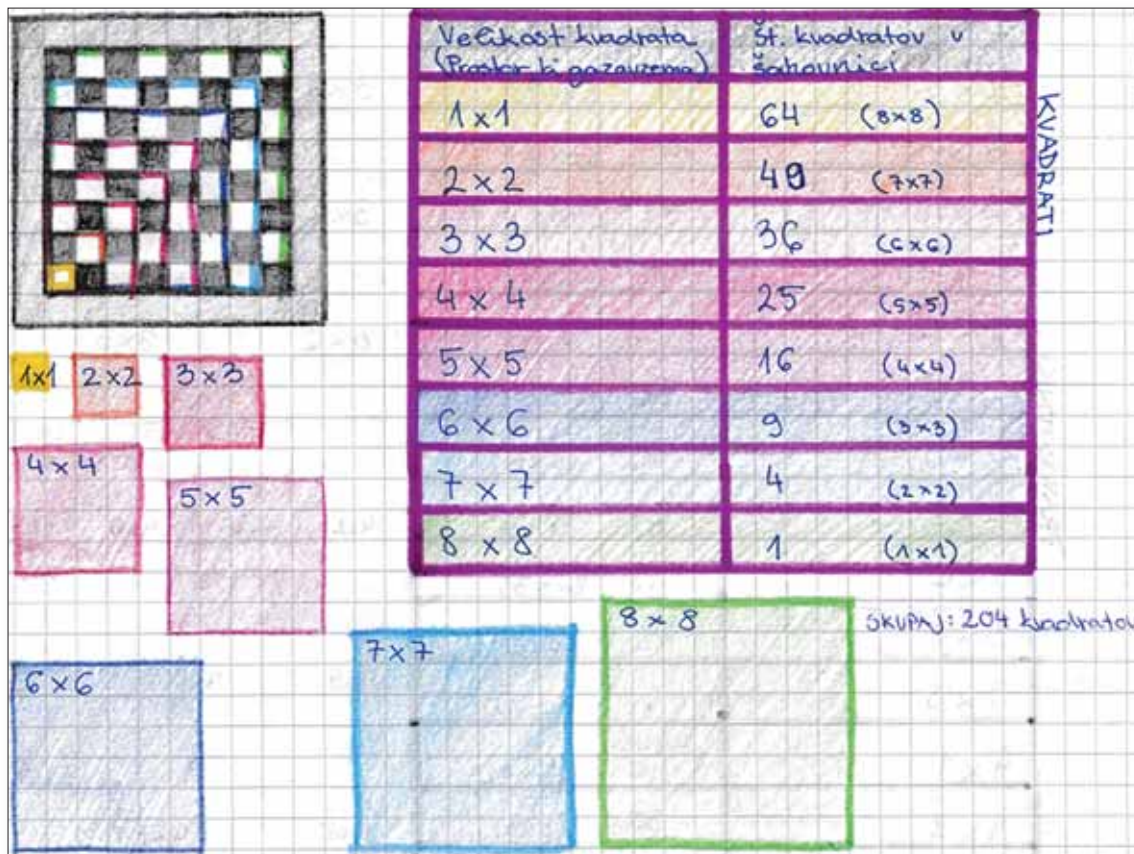 Velikost kvadrata
(Prostor ki ga zavzema)
Št. kvadratov v
šahovnici
1x1 64 (8x8)
2x2 49 (7x7)
3x3 36 (6x6)
4x4 25 (5x5)
5x5 16 (4x4)
6x6 9 (3x3)
7x7 4 (2x2)
8x8 1 (1x1)
KVADRATI
1x1
2x2
3x3
4x4
5x5
6x6
7x7
8x8
SKUPAJ: 204 kvadratov